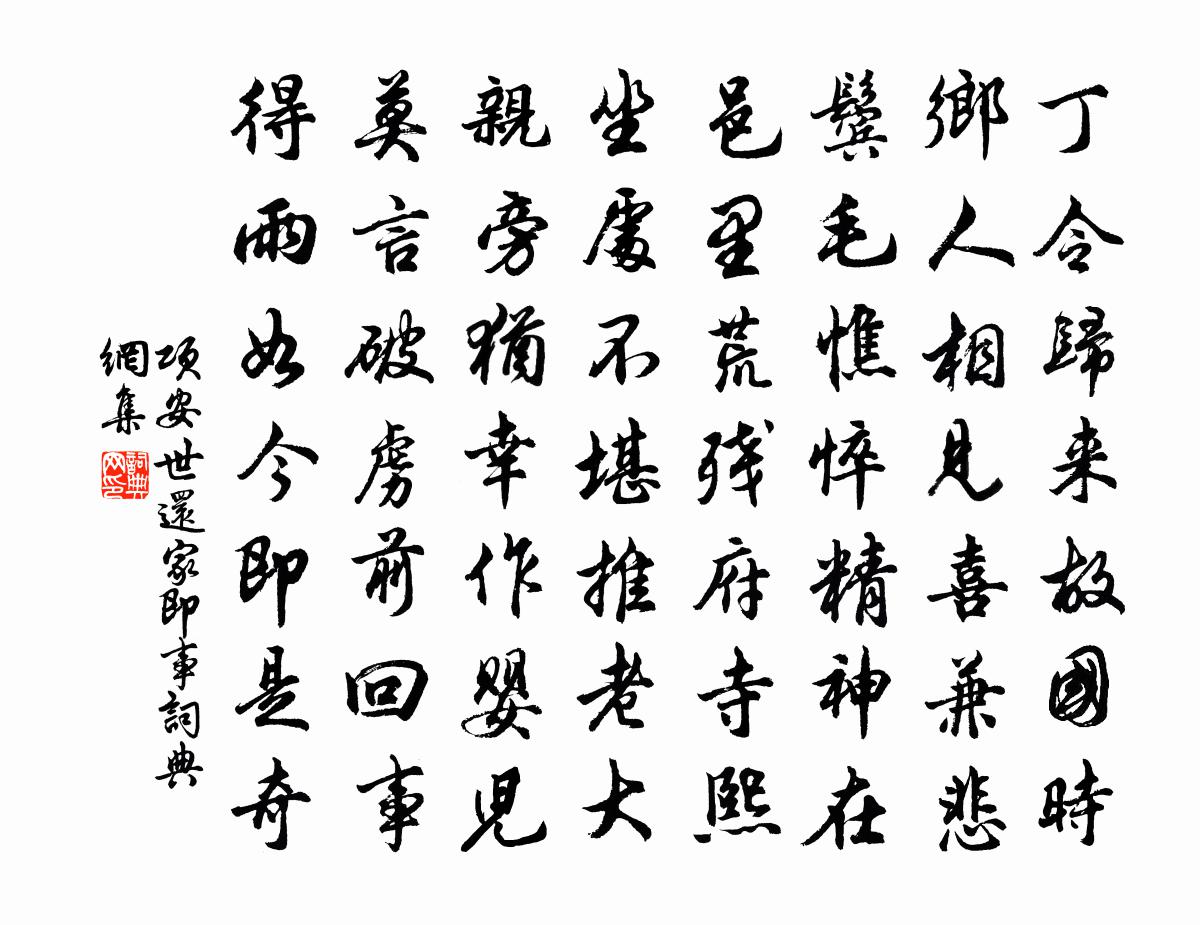 丁令歸来故國時
鄉人相見喜兼悲
鬓毛憔悴精神在
邑里荒残府寺熙
坐處不堪推老大
親旁猶幸作嬰児
莫言破虜前回事
得雨如今即是奇
項安世還家即事詞典
網集
詞典网印